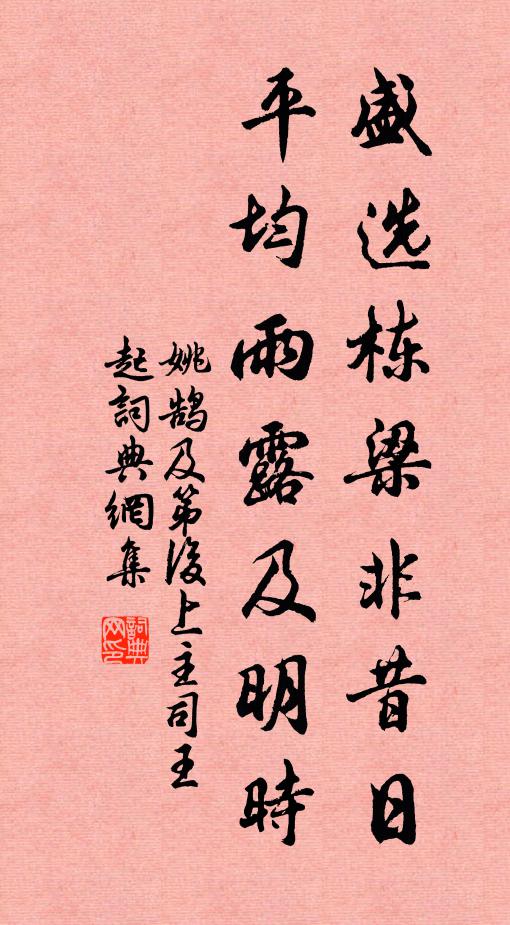 盛选栋梁非昔日
平均雨露及明時
姚鹄及第後上主司王
起詞典網集
詞典网印